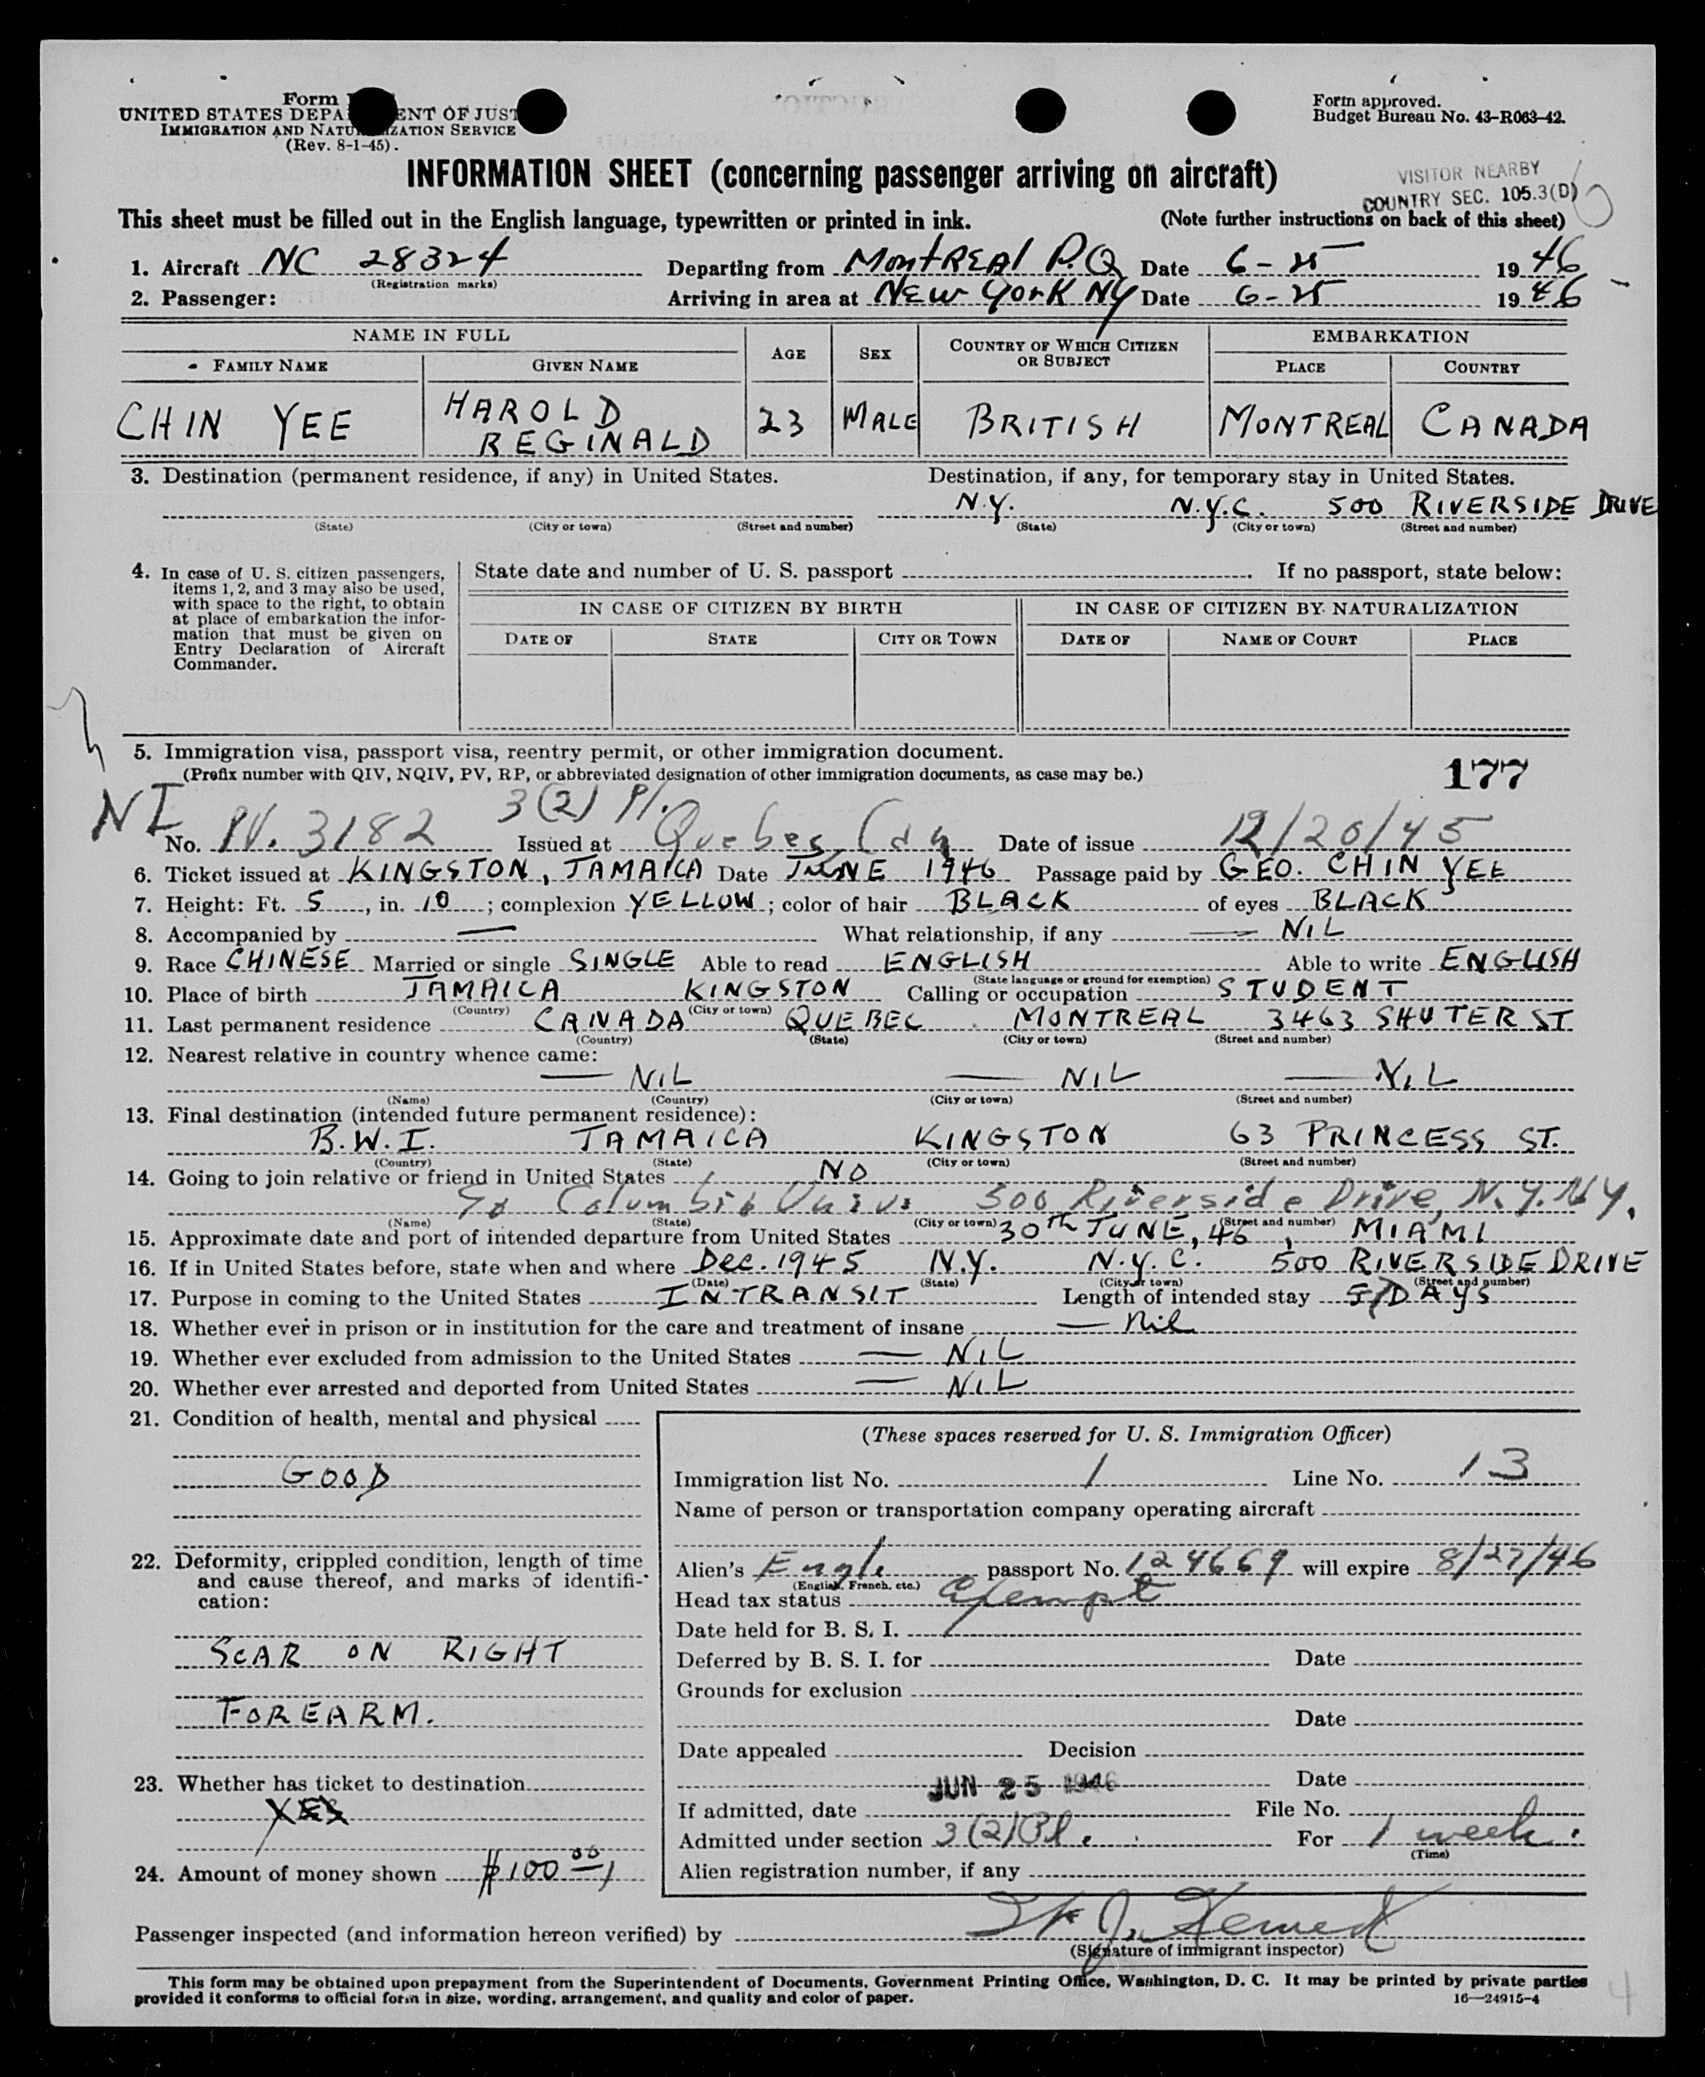 Form
UNITED STATES DEPARTMENT OF JUST
IMMIGRATION AND NATURALIZATION SERVICE
(Rev. 8-1-45).
Form approved.
Budget Bureau No. 43-R063-42.
INFORMATION SHEET (concerning passenger arriving on aircraft)
VISITOR NEARBY
COUNTRY SEC. 105.3(D)
This sheet must be filled out in the English language, typewritten or printed in ink. (Note further instructions on back of this sheet)
1. Aircraft NC 28324 Departing from MONTREAL P.Q. Date 6-25 1946
(Registration marks)
2. Passenger: Arriving in area at NEW YORK NY Date 6-25 1946
NAME IN FULL AGE SEX COUNTRY OF WHICH CITIZEN OR SUBJECT EMBARKATION
FAMILY NAME GIVEN NAME PLACE COUNTRY
CHIN YEE HAROLD REGINALD 23 MALE BRITISH MONTREAL CANADA
3. Destination (permanent residence, if any) in United States. Destination, if any, for temporary stay in United States.
N.Y. N.Y.C. 500 RIVERSIDE DRIVE
(State) (City or town) (Street and number) (State) (City or town) (Street and number)
4. In case of U. S. citizen passengers, items 1, 2, and 3 may also be used, with space to the right, to obtain at place of embarkation the information that must be given on Entry Declaration of Aircraft Commander.
State date and number of U. S. passport. If no passport, state below:
IN CASE OF CITIZEN BY BIRTH IN CASE OF CITIZEN BY NATURALIZATION
DATE OF STATE CITY OR TOWN DATE OF NAME OF COURT PLACE
5. Immigration visa, passport visa, reentry permit, or other immigration document.
(Prefix number with QIV, NQIV, PV, RP, or abbreviated designation of other immigration documents, as case may be.)
177
NI 3(2) Pl.
No. PV. 3182 Issued at Quebec, Can Date of issue 12/20/45
6. Ticket issued at KINGSTON, JAMAICA Date JUNE 1946 Passage paid by GEO. CHIN YEE
7. Height: Ft. 5, in. 10; complexion YELLOW; color of hair BLACK of eyes BLACK
8. Accompanied by — What relationship, if any — NIL
9. Race CHINESE Married or single SINGLE Able to read ENGLISH Able to write ENGLISH
(State language or ground for exemption)
10. Place of birth JAMAICA KINGSTON Calling or occupation STUDENT
(Country) (City or town)
11. Last permanent residence CANADA QUEBEC MONTREAL 3463 SHUTER ST
(Country) (State) (City or town) (Street and number)
12. Nearest relative in country whence came:
— NIL — NIL — NIL
(Name) (Country) (City or town) (Street and number)
13. Final destination (intended future permanent residence):
B.W.I. JAMAICA KINGSTON 63 PRINCESS ST.
(Country) (State) (City or town) (Street and number)
14. Going to join relative or friend in United States NO
Columbia Univ. 500 Riverside Drive, N.Y. N.Y.
(Name) (State) (City or town) (Street and number)
15. Approximate date and port of intended departure from United States 30TH JUNE, 46, MIAMI
16. If in United States before, state when and where Dec. 1945 N.Y. N.Y.C. 500 RIVERSIDE DRIVE
(Date) (State) (City or town) (Street and number)
17. Purpose in coming to the United States INTRANSIT Length of intended stay 5 DAYS
18. Whether ever in prison or in institution for the care and treatment of insane — Nil
19. Whether ever excluded from admission to the United States — NIL
20. Whether ever arrested and deported from United States — NIL
21. Condition of health, mental and physical
GOOD
22. Deformity, crippled condition, length of time and cause thereof, and marks of identification:
SCAR ON RIGHT
FOREARM.
23. Whether has ticket to destination
YES
24. Amount of money shown $100.00
(These spaces reserved for U. S. Immigration Officer)
Immigration list No. 1 Line No. 13
Name of person or transportation company operating aircraft
Alien's Engl. passport No. 124669 will expire 8/27/46
(English, French, etc.)
Head tax status Exempt
Date held for B. S. I.
Deferred by B. S. I. for Date
Grounds for exclusion
Date
Date appealed Decision
Date
JUN 25 1946
If admitted, date File No.
Admitted under section 3(2) Pl. For 1 week.
(Time)
Alien registration number, if any
Passenger inspected (and information hereon verified) by
(Signature of immigrant inspector)
This form may be obtained upon prepayment from the Superintendent of Documents, Government Printing Office, Washington, D. C. It may be printed by private parties
provided it conforms to official form in size, wording, arrangement, and quality and color of paper.
16—24915-4
4